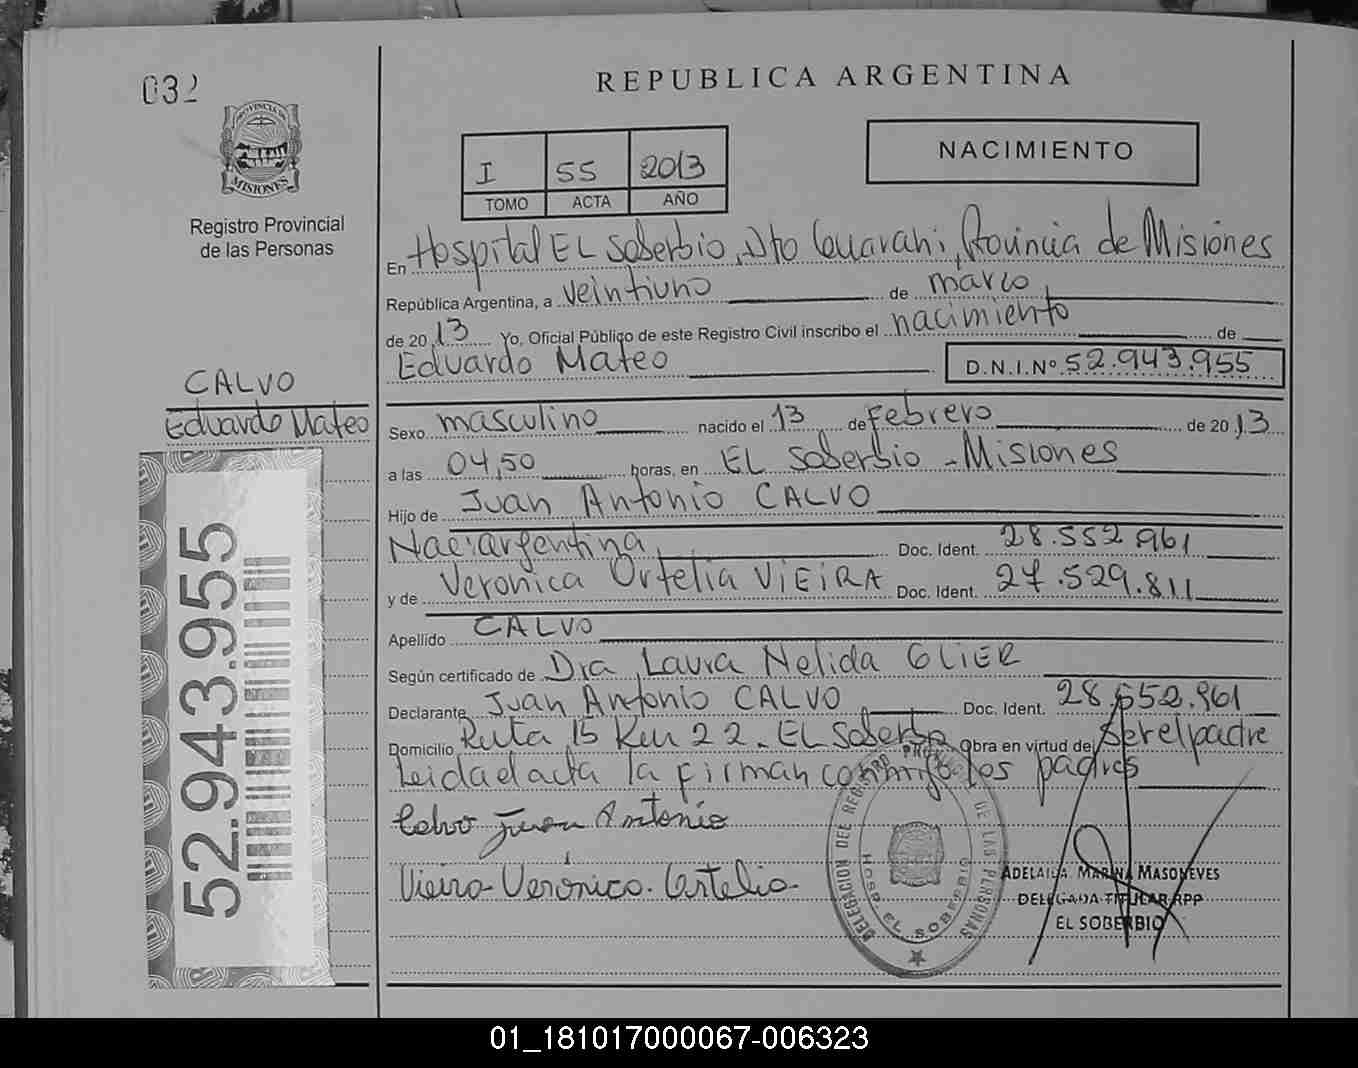 032
REPUBLICA ARGENTINA
PROVINCIA DE
MISIONES
Registro Provincial
de las Personas
I 55 2013
TOMO ACTA AÑO
NACIMIENTO
En Hospital EL Soberbio, Dto Guarani, Provincia de Misiones
República Argentina, a veintiuno de marzo
de 2013 Yo, Oficial Público de este Registro Civil inscribo el nacimiento de
Eduardo Mateo D.N.I.Nº 52.943.955
CALVO
Eduardo Mateo
Sexo masculino nacido el 13 de Febrero de 2013
a las 04,50 horas, en EL Soberbio - Misiones
Hijo de Juan Antonio CALVO
Nac: argentina Doc. Ident. 28.552.961
y de Veronica Ortelia VIEIRA Doc. Ident. 27.529.811
Apellido CALVO
Según certificado de Dra Laura Nelida GLIER
Declarante Juan Antonio CALVO Doc. Ident. 28.552.961
Domicilio Ruta 15 Km 22 - EL Soberbio Obra en virtud de Ser el padre
Leida el acta la firman conmigo los padres
Calvo Juan Antonio
Vieira Verónica Ortelia
52.943.955
DELEGACION DEL REGISTRO PROVINCIAL DE LAS PERSONAS
HOSP. EL SOBERBIO
ADELAIDA MARINA MASONEVES
DELEGADA TITULAR RPP
EL SOBERBIO
01_181017000067-006323